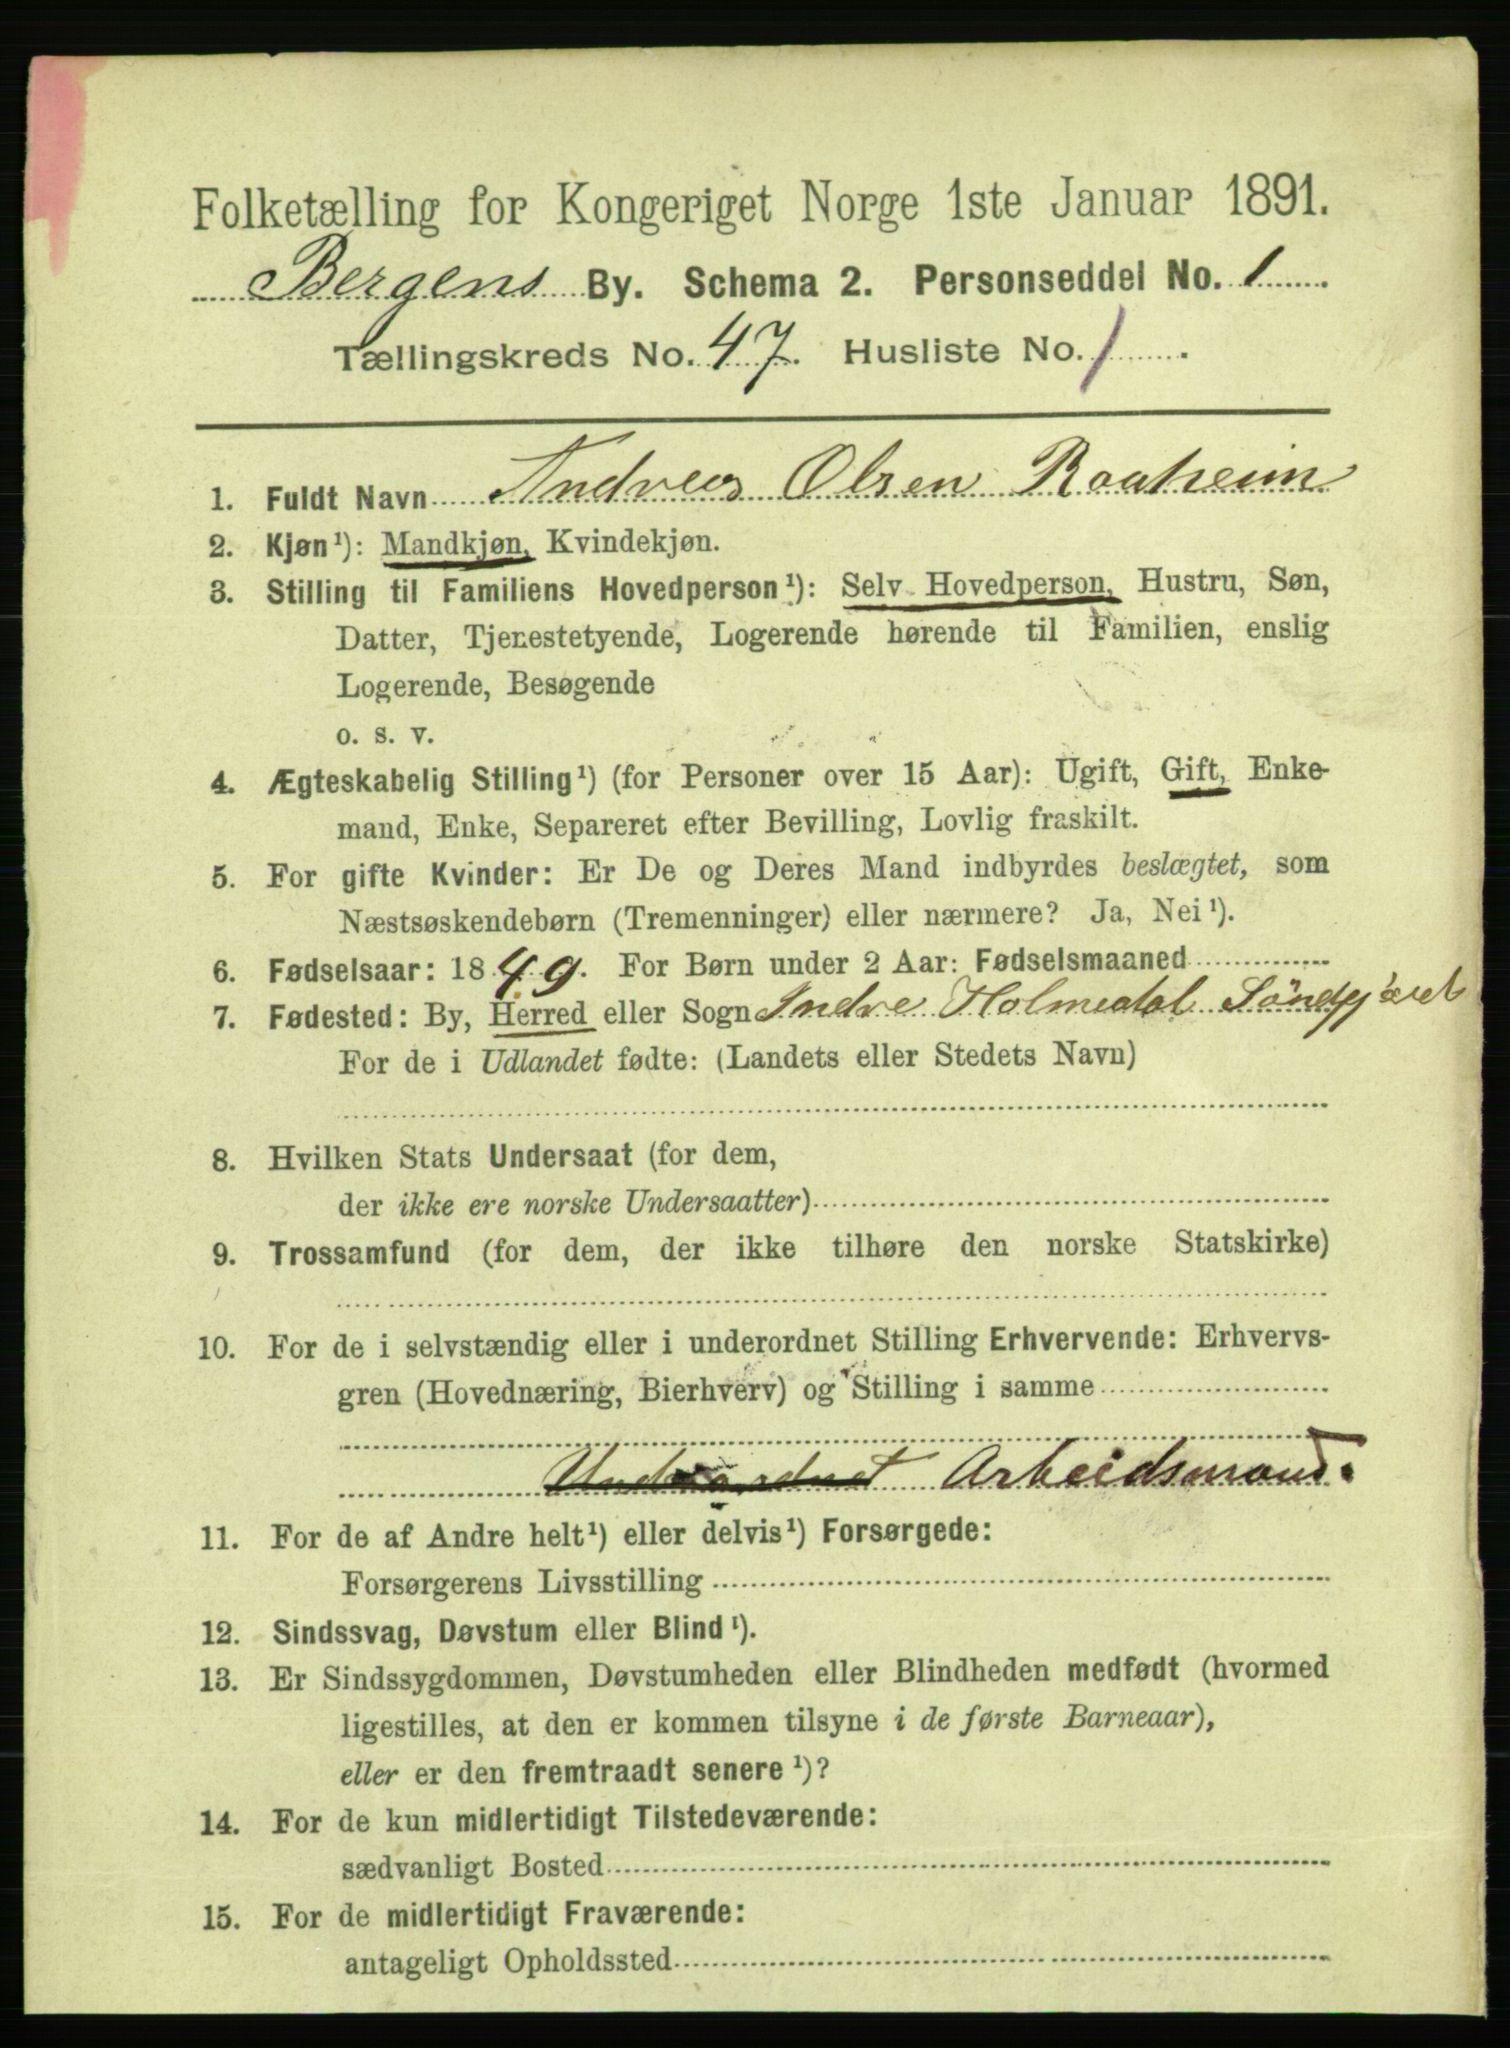 Folketælling for Kongeriget Norge 1ste Januar 1891.
Bergens By. Schema 2. Personseddel No. 1.
Tællingskreds No. 47. Husliste No. 1.
1. Fuldt Navn Andreas Olsen Raaheim
2. Kjøn¹): Mandkjøn, Kvindekjøn.
3. Stilling til Familiens Hovedperson¹): Selv Hovedperson, Hustru, Søn,
Datter, Tjenestetyende, Logerende hørende til Familien, enslig
Logerende, Besøgende
o. s. v.
4. Ægteskabelig Stilling¹) (for Personer over 15 Aar): Ugift, Gift, Enke-
mand, Enke, Separeret efter Bevilling, Lovlig fraskilt.
5. For gifte Kvinder: Er De og Deres Mand indbyrdes beslægtet, som
Næstsøskendebørn (Tremenninger) eller nærmere? Ja, Nei¹).
6. Fødselsaar: 1849. For Børn under 2 Aar: Fødselsmaaned
7. Fødested: By, Herred eller Sogn Indre Holmedal Söndfjæret
For de i Udlandet fødte: (Landets eller Stedets Navn)
8. Hvilken Stats Undersaat (for dem,
der ikke ere norske Undersaatter)
9. Trossamfund (for dem, der ikke tilhøre den norske Statskirke)
10. For de i selvstændig eller i underordnet Stilling Erhvervende: Erhvervs-
gren (Hovednæring, Bierhverv) og Stilling i samme
Underordnet Arbeidsmand.
11. For de af Andre helt¹) eller delvis¹) Forsørgede:
Forsørgerens Livsstilling
12. Sindssvag, Døvstum eller Blind¹).
13. Er Sindssygdommen, Døvstumheden eller Blindheden medfødt (hvormed
ligestilles, at den er kommen tilsyne i de første Barneaar),
eller er den fremtraadt senere¹)?
14. For de kun midlertidigt Tilstedeværende:
sædvanligt Bosted
15. For de midlertidigt Fraværende:
antageligt Opholdssted